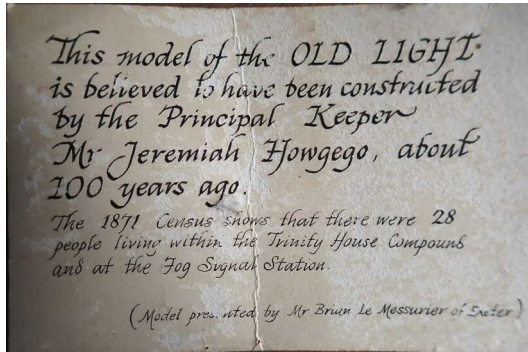 This model of the OLD LIGHT
is believed to have been constructed
by the Principal Keeper
Mr Jeremiah Howgego, about
100 years ago.
The 1871 Census shows that there were 28
people living within the Trinity House Compound
and at the Fog Sygnal Station.
(Model presented by Mr Brian Le Messurier of Exeter)